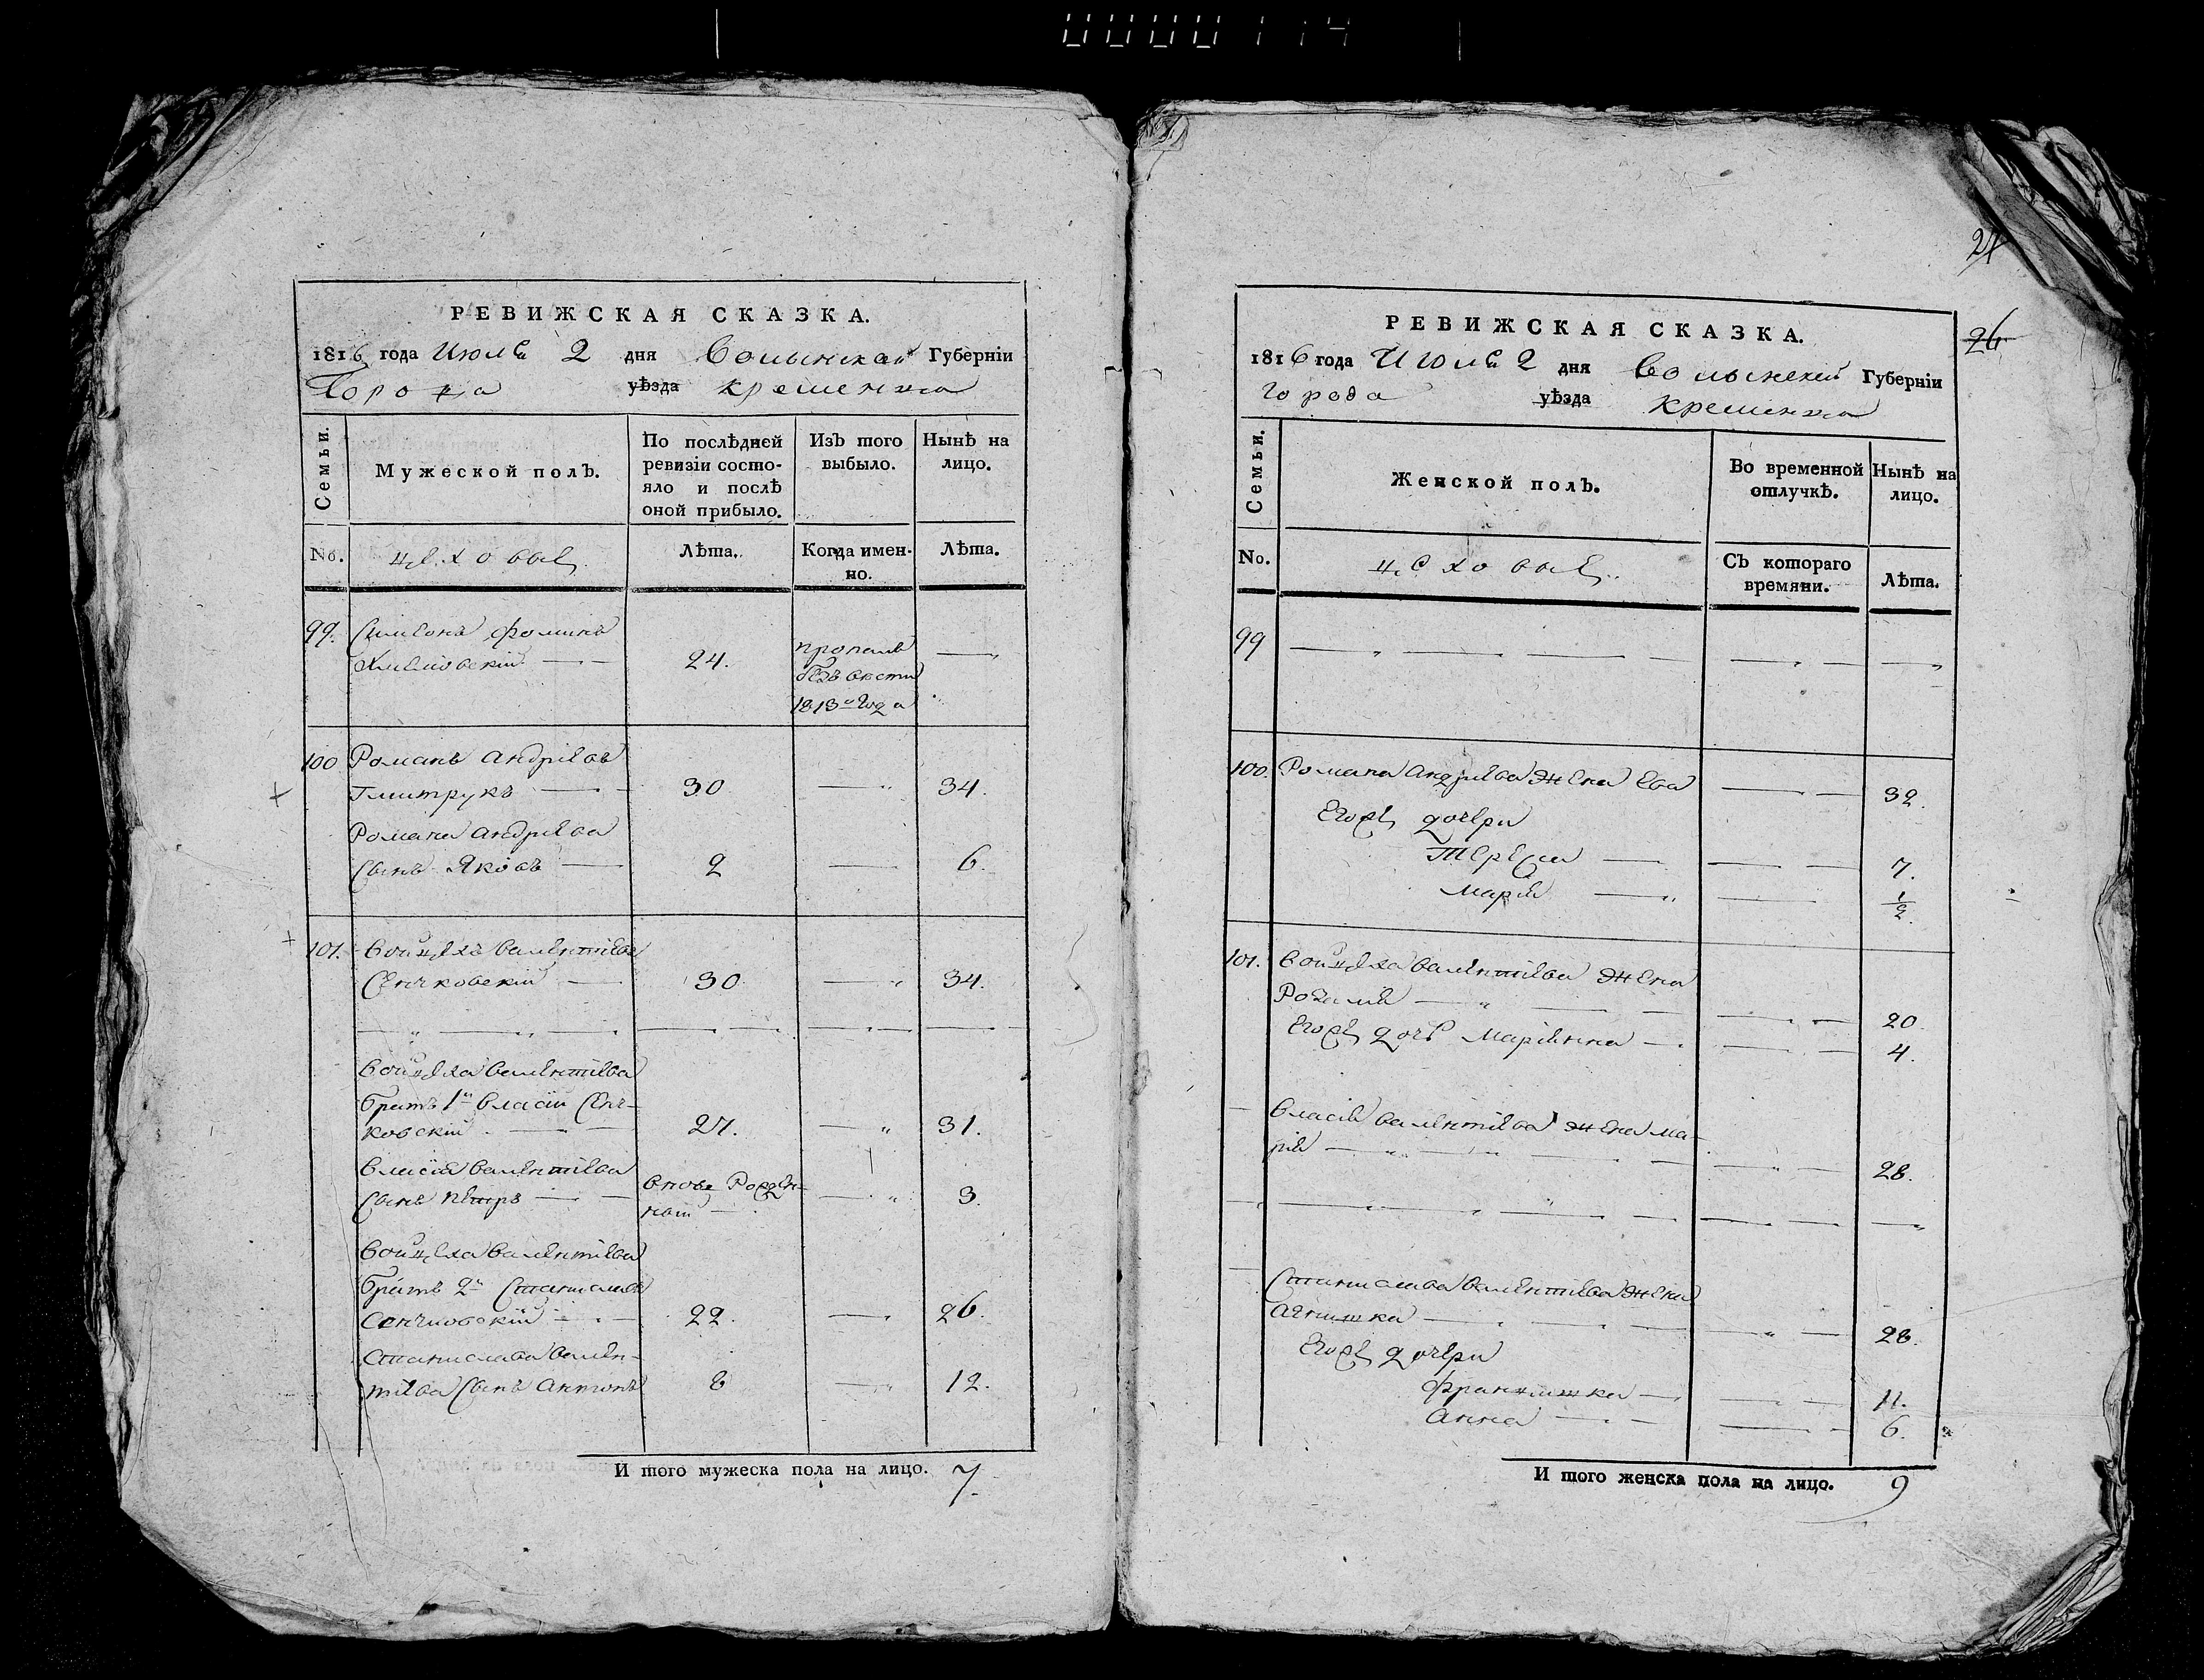 0000114
РЕВИЖСКАЯ СКАЗКА.
1816 года Июля 2 дня Волынской Губерніи
Города уѣзда Кременца
Семьи.
Мужеской полъ.
По послѣдней ревизіи состо-
яло и послѣ
оной прибыло.
Изъ того
выбыло.
Нынѣ на
лицо.
No.
цеховые
Лѣта.
Когда имен-
но.
Лѣта.
99. Симеонъ Фоминъ
24.
пропалъ
безъ вести
1813го года
100 Романъ Андріевъ
Гмитрукъ 30 34.
Романа Андріева
Сынъ Яковъ 2 6.
101. Войцехъ Валентіевъ
Сенчковскій 30 34.
Войцеха Валентіева
братъ 1й Власій Сенч-
ковскій 27. 31.
Власія Валентіева
Сынъ Петръ вновь Рожден-
ный 3.
Войцеха Валентіева
братъ 2й Станиславъ
Сенчковскій 22. 26.
Станислава Вален-
тіева Сынъ Антонъ 8 12.
И того мужеска пола на лицо. 7.
24
26
РЕВИЖСКАЯ СКАЗКА.
1816 года Июля 2 дня Волынской Губерніи
Города уѣзда Кременца
Семьи.
Женской полъ.
Во временной
отлучкѣ.
Нынѣ на
лицо.
No.
цеховые
Съ котораго
времяни.
Лѣта.
99
100. Романа Андріева жена Ева 32.
Его же дочери
Тереса 7.
Марія 1/2.
101. Войцеха Валентіева жена
Розалія 20.
Его же дочь Маріянна 4.
Власія Валентіева жена Ма-
рія 28.
Станислава Валентіева жена
Агнишка 28.
Его же дочери
Францишка 11.
Анна 6.
И того женска пола на лицо. 9